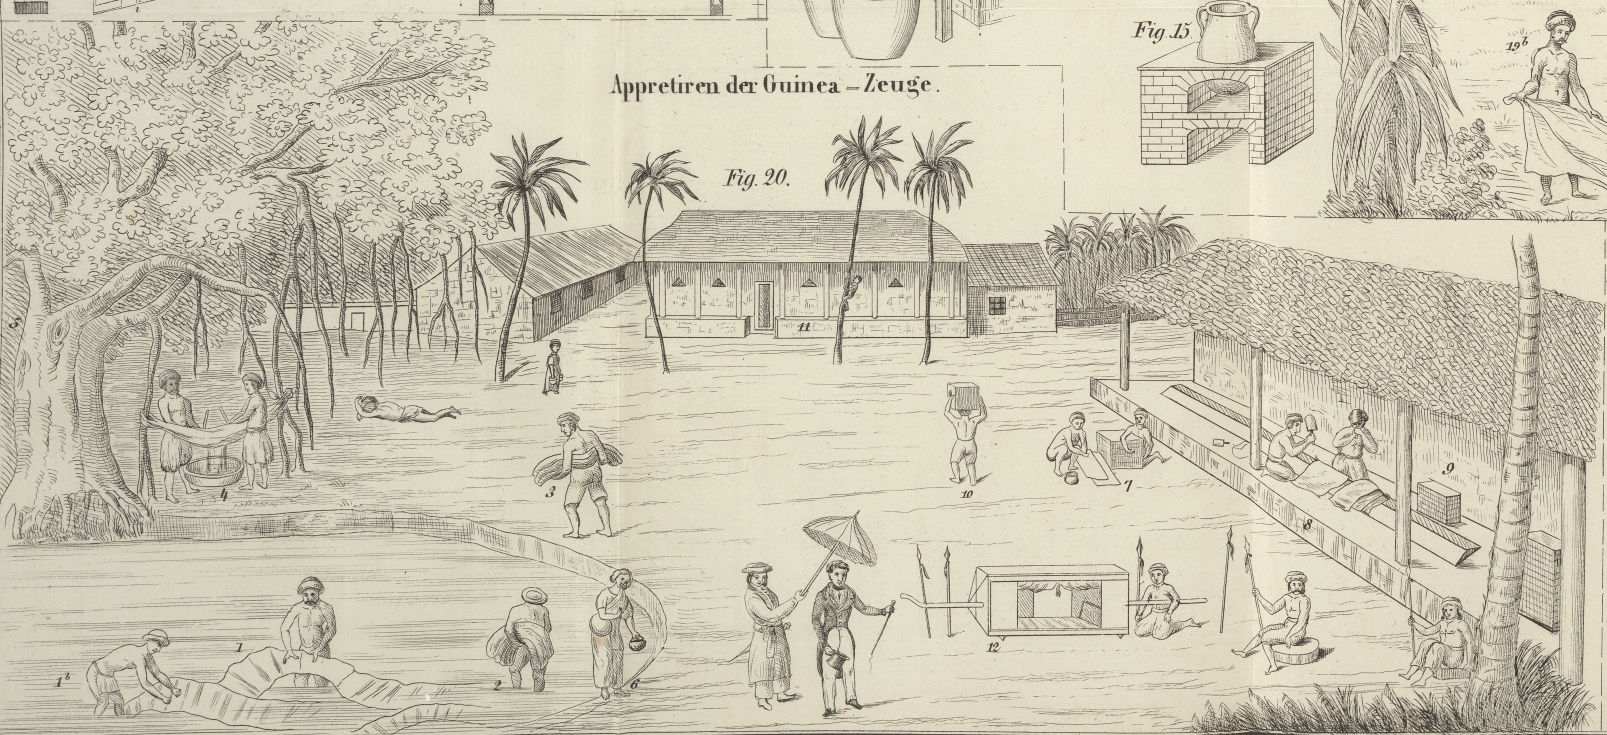 Fig. 15.
19b
Appretiren der Guinea – Zeuge.
Fig. 20.
5
11
4
3
10
7
9
8
1
1b
2
6
12